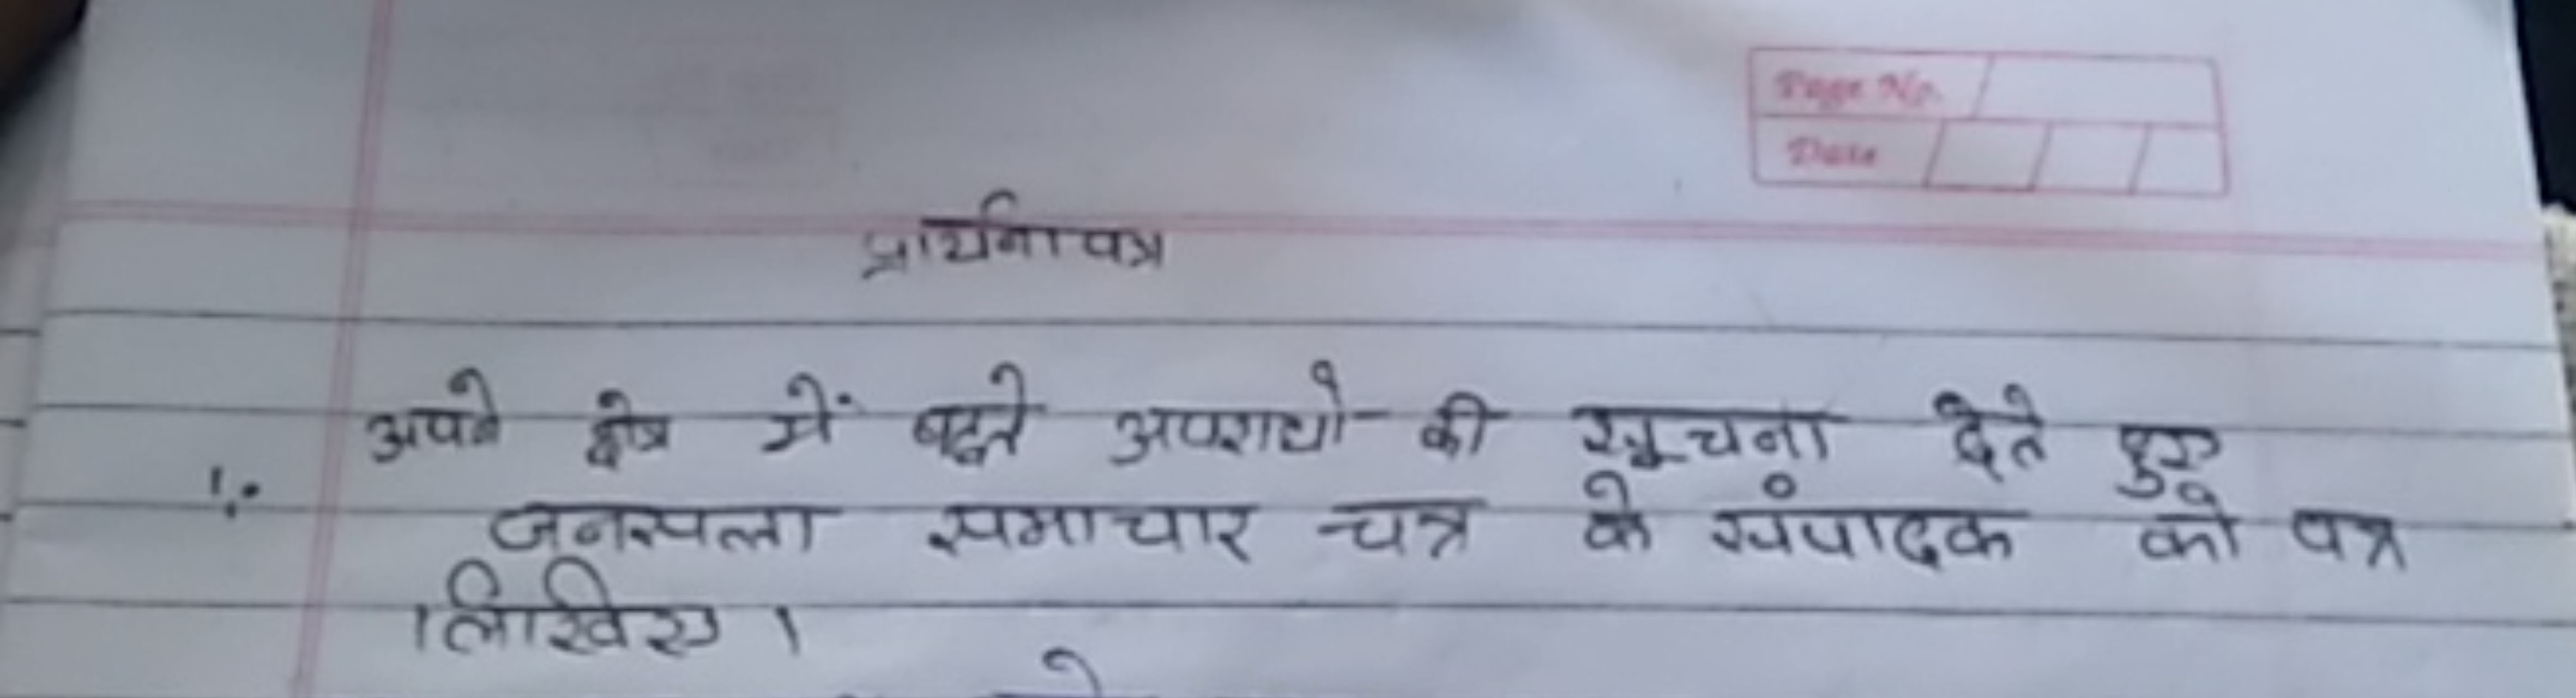 Page No.
Date
प्रार्थना पत्र
अपने क्षेत्र में बढ़ते अपराधो की सूचना देते हुए
1.
जनसत्ता समाचार चत्र के संपादक को पत्र
लिखिए ।